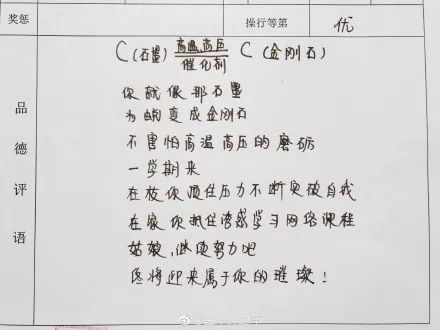 奖惩 操行等第 优
品德评语
C(石墨) 高温,高压 催化剂 C(金刚石)
你就像那石墨
为蜕变成金刚石
不害怕高温高压的磨砺
一学期来
在校你顶住压力不断突破自我
在家你抵住诱惑学习网络课程
姑娘,继续努力吧
终将迎来属于你的璀璨!